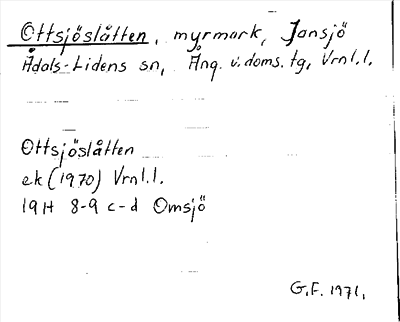 Ottsjöslåtten, myrmark, Jansjö
Ådals-Lidens sn, Ång. v. doms. tg, Vrnl.l.
Ottsjöslåtten
ek (1970) Vrnl.l.
19H 8-9 c-d Omsjö
G.F. 1971.